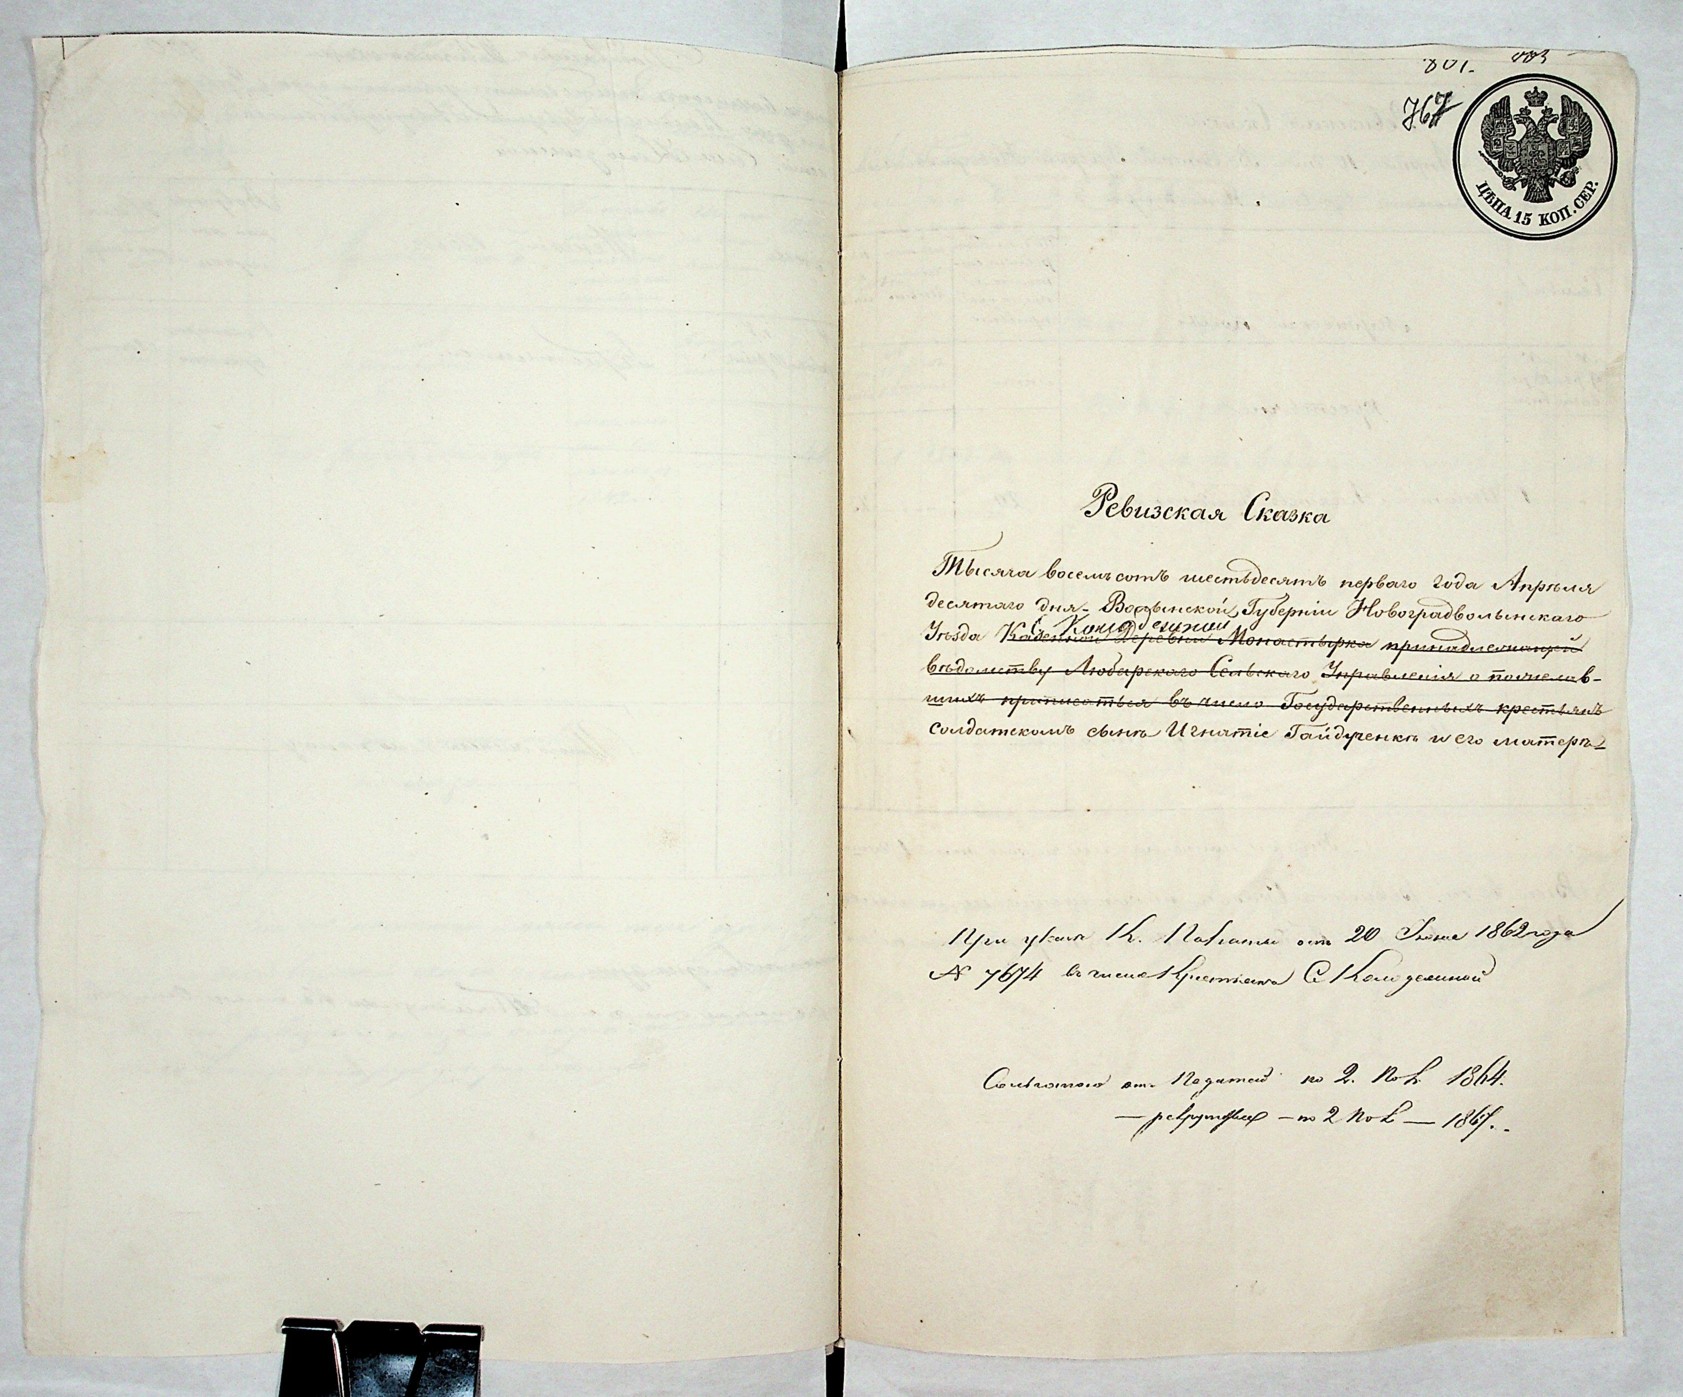 801.
767
ЦѢНА 15 КОП. СЕР.
Ревизская Сказка
Тысяча восемьсотъ шестьдесятъ перваго года Апрѣля
десятаго дня - Волынской Губерніи Новоградволынскаго
С. Колодежной
Уѣзда Казенной Деревни Монастырка принадлежащей
вѣдомству Любарскаго Сельскаго Управленія о пожелав-
шихъ приписаться въ число Государственныхъ крестьянъ
солдатскомъ сынѣ Игнатіе Гайдученкѣ и его матерѣ
При указѣ К. Палаты отъ 20 Іюня 1862 года
№ 7674 въ число Крестьянъ С Колодежной
отъ Податей по 2. пол. 1864.
— рекрутской — по 2 пол — 1867.